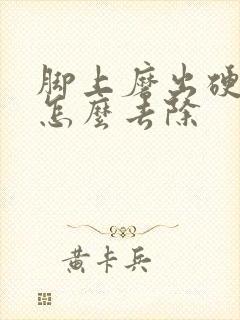 脚上磨出硬
怎麼去除
黄卡兵